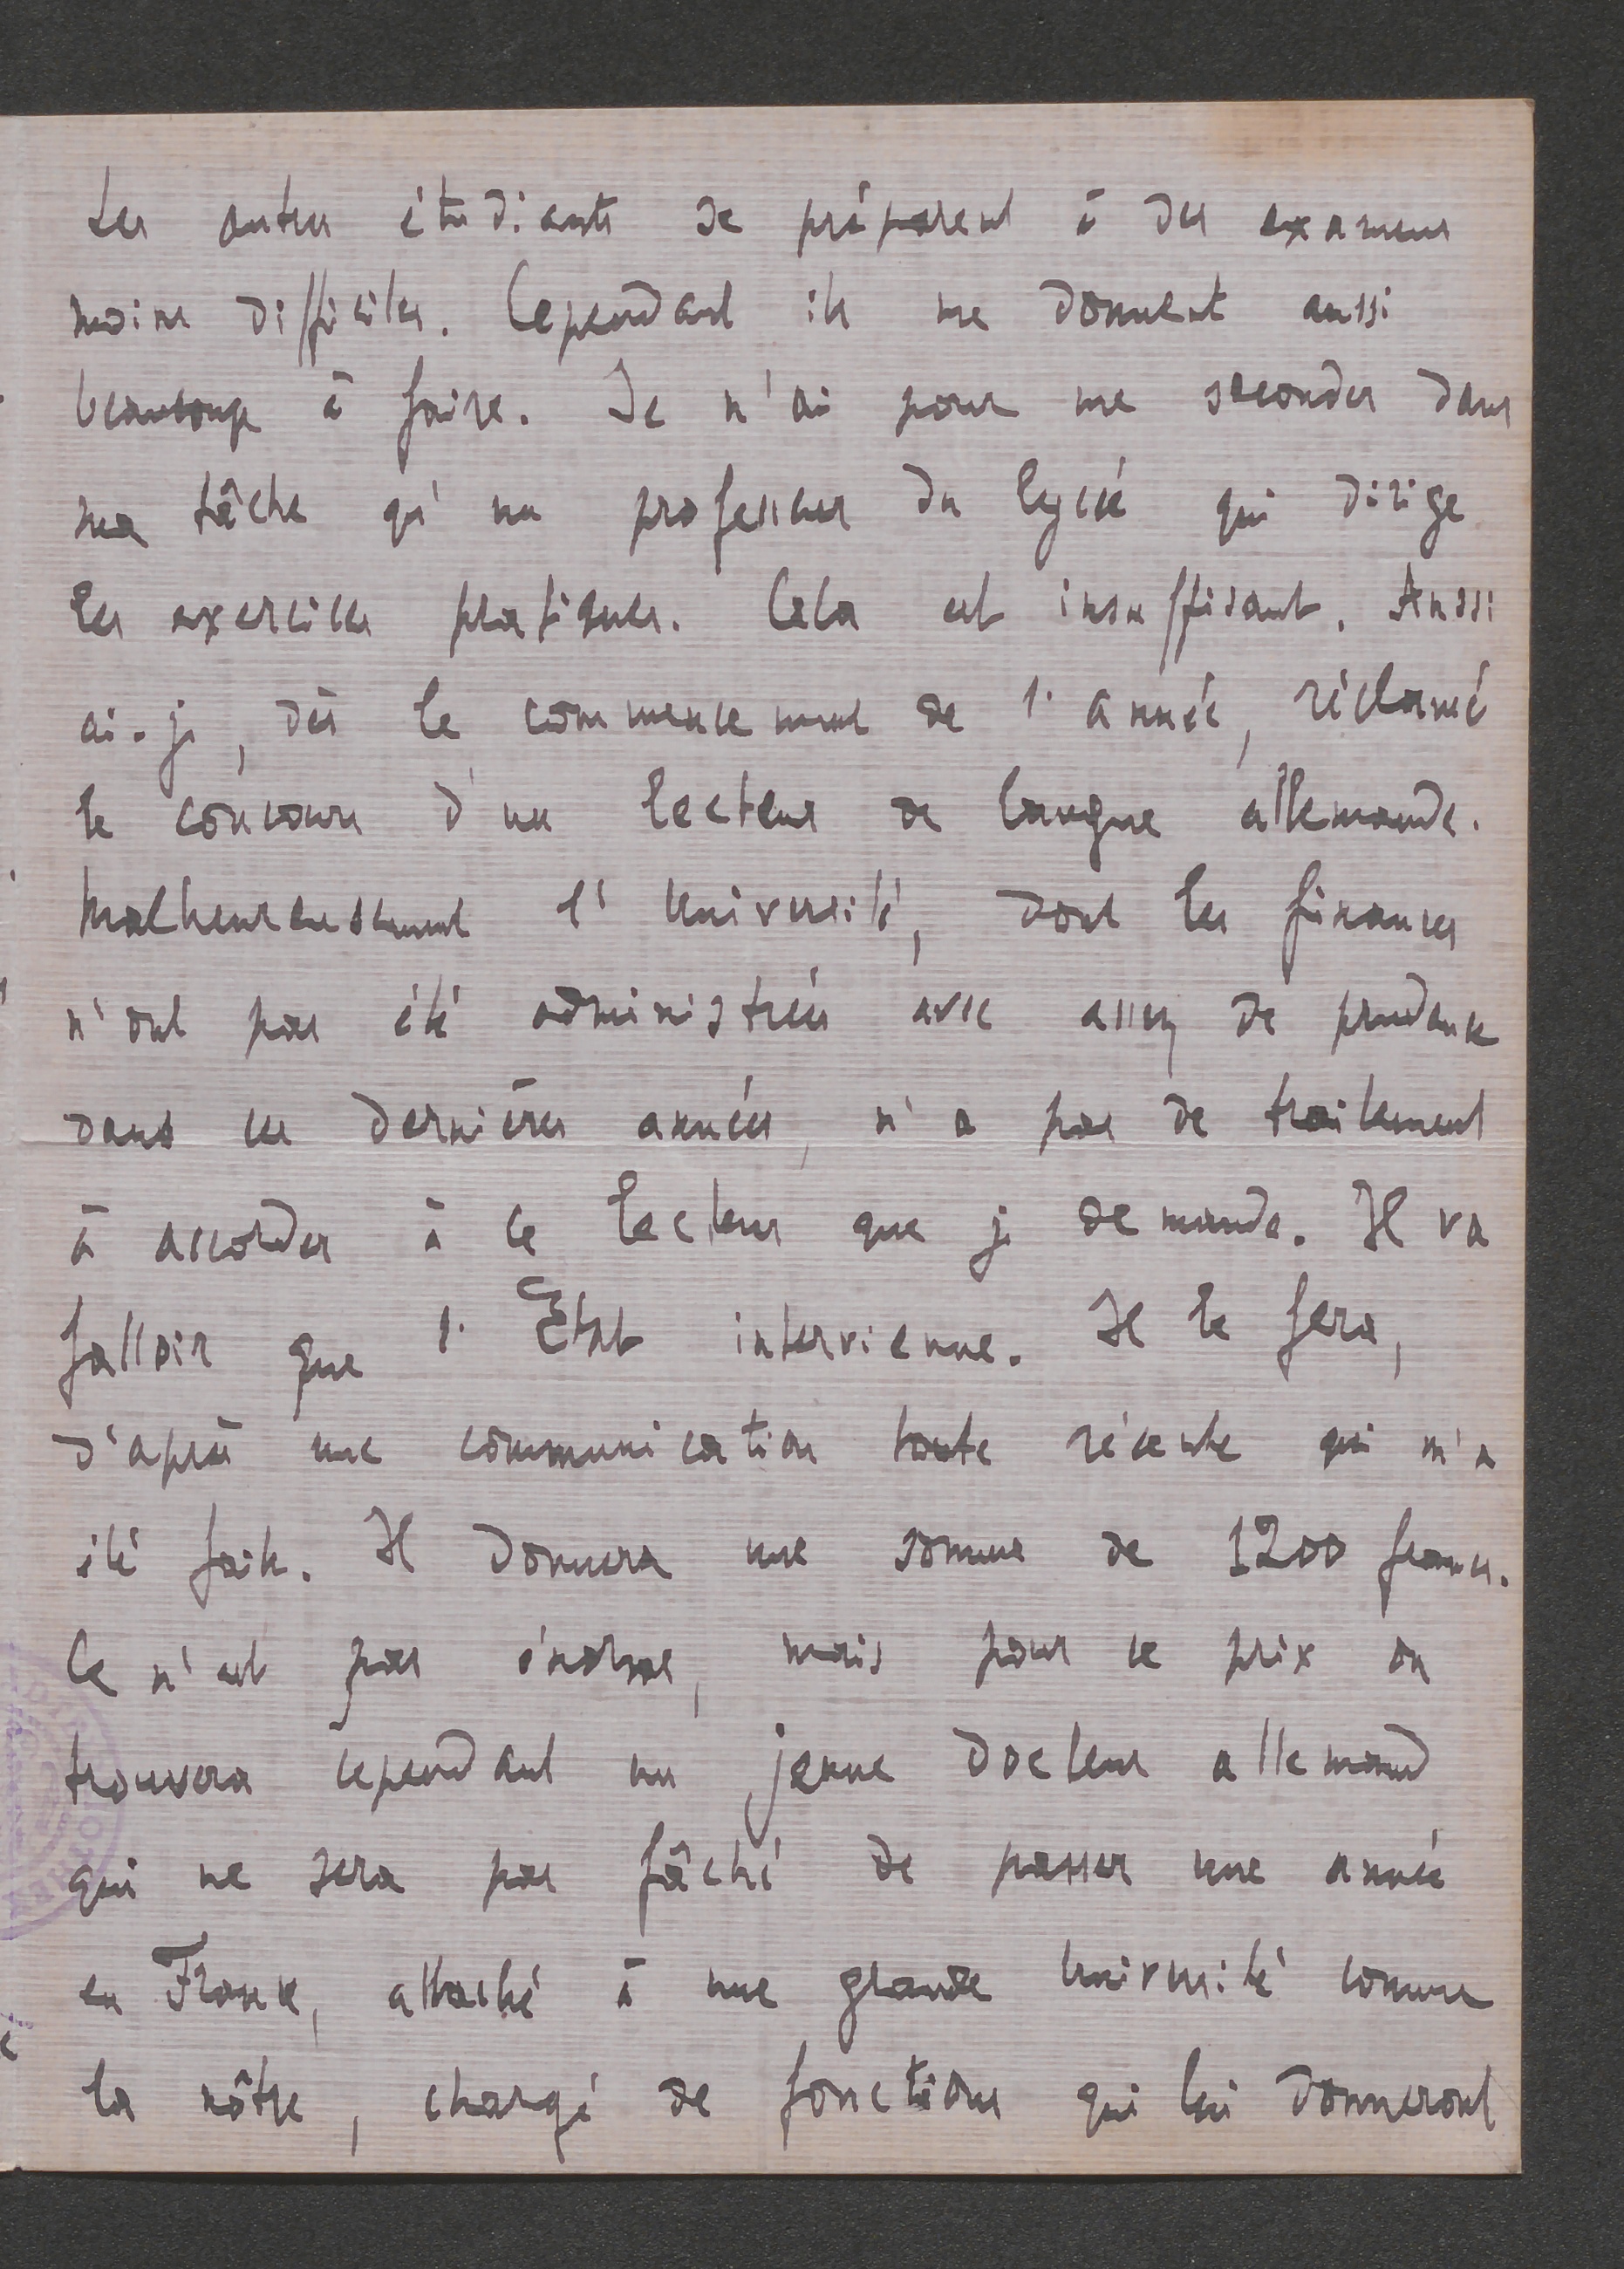 Les autres étudiants se préparent à des examens
moins difficiles. Cependant ils me donnent aussi
beaucoup à faire. Je n'ai pour me seconder dans
ma tâche qu'un professeur du lycée qui dirige
les exercices pratiques. Cela est insuffisant. Aussi
ai-je, dès le commencement de l'année, réclamé
le concours d'un lecteur de langue allemande.
Malheureusement l'Université, dont les finances
n'ont pas été administrées avec assez de prudence
dans ces dernières années, n'a pas de traitement
à accorder à ce lecteur que je demande. Il va
falloir que l'Etat intervienne. Il le fera,
d'après une communication toute récente qui m'a
été faite. Il donnera une somme de 1200 francs.
Ce n'est pas énorme, mais pour ce prix on
trouvera cependant un jeune docteur allemand
qui ne sera pas fâché de passer une année
en France, attaché à une grande Université comme
la nôtre, chargé de fonctions qui lui donneront